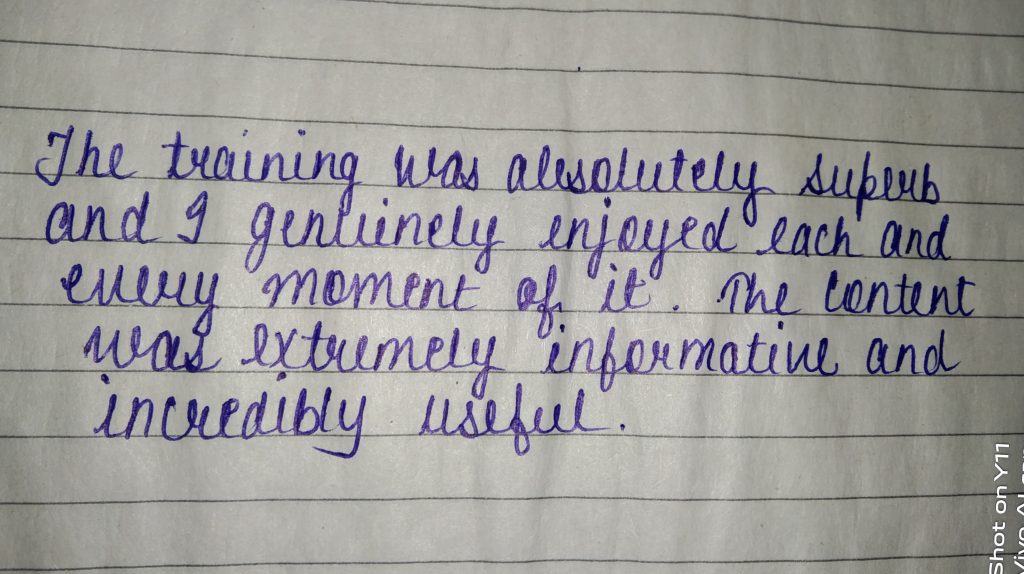 The training was absolutely superb
and I genuinely enjoyed each and
every moment of it. The content
was extremely informative and
incredibly useful.
Shot on Y11